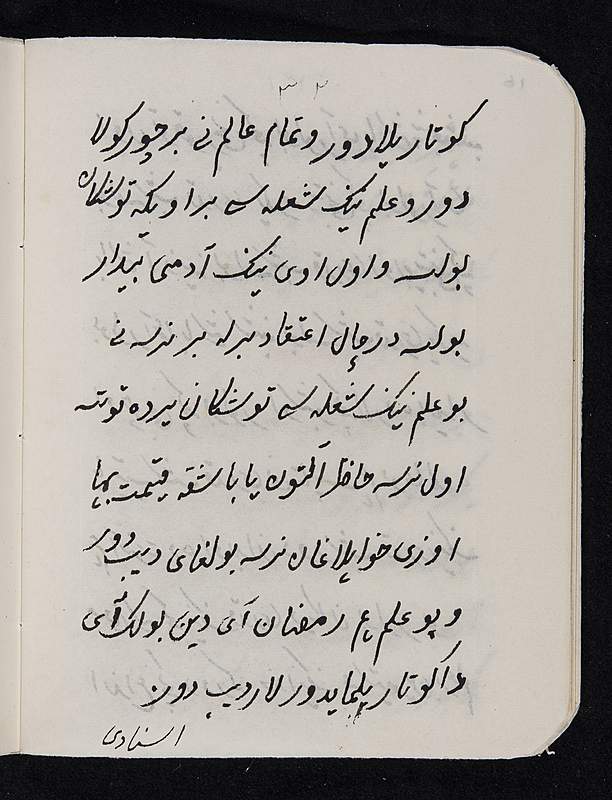 ۳۲
کوتاریلادور و تمام عالم نی بر چورکولا
دور و علم نینک شعله سی بر اویکه توشکان
بولسه و اول اوی نینک آدمی بیدار
بولسه در حال اعتقاد برله بر نرسه نی
بو علم نینک شعله سی توشکان یرده توتسه
اول نرسه حاظر آلتون یا باشقه قیمت بها
اوزی خوایلاغان نرسه بولغای دیب دور
و بو علم هم رمضان آی دین بولک آی
دا کوتاریلمایدورلار دیب دور
استادی